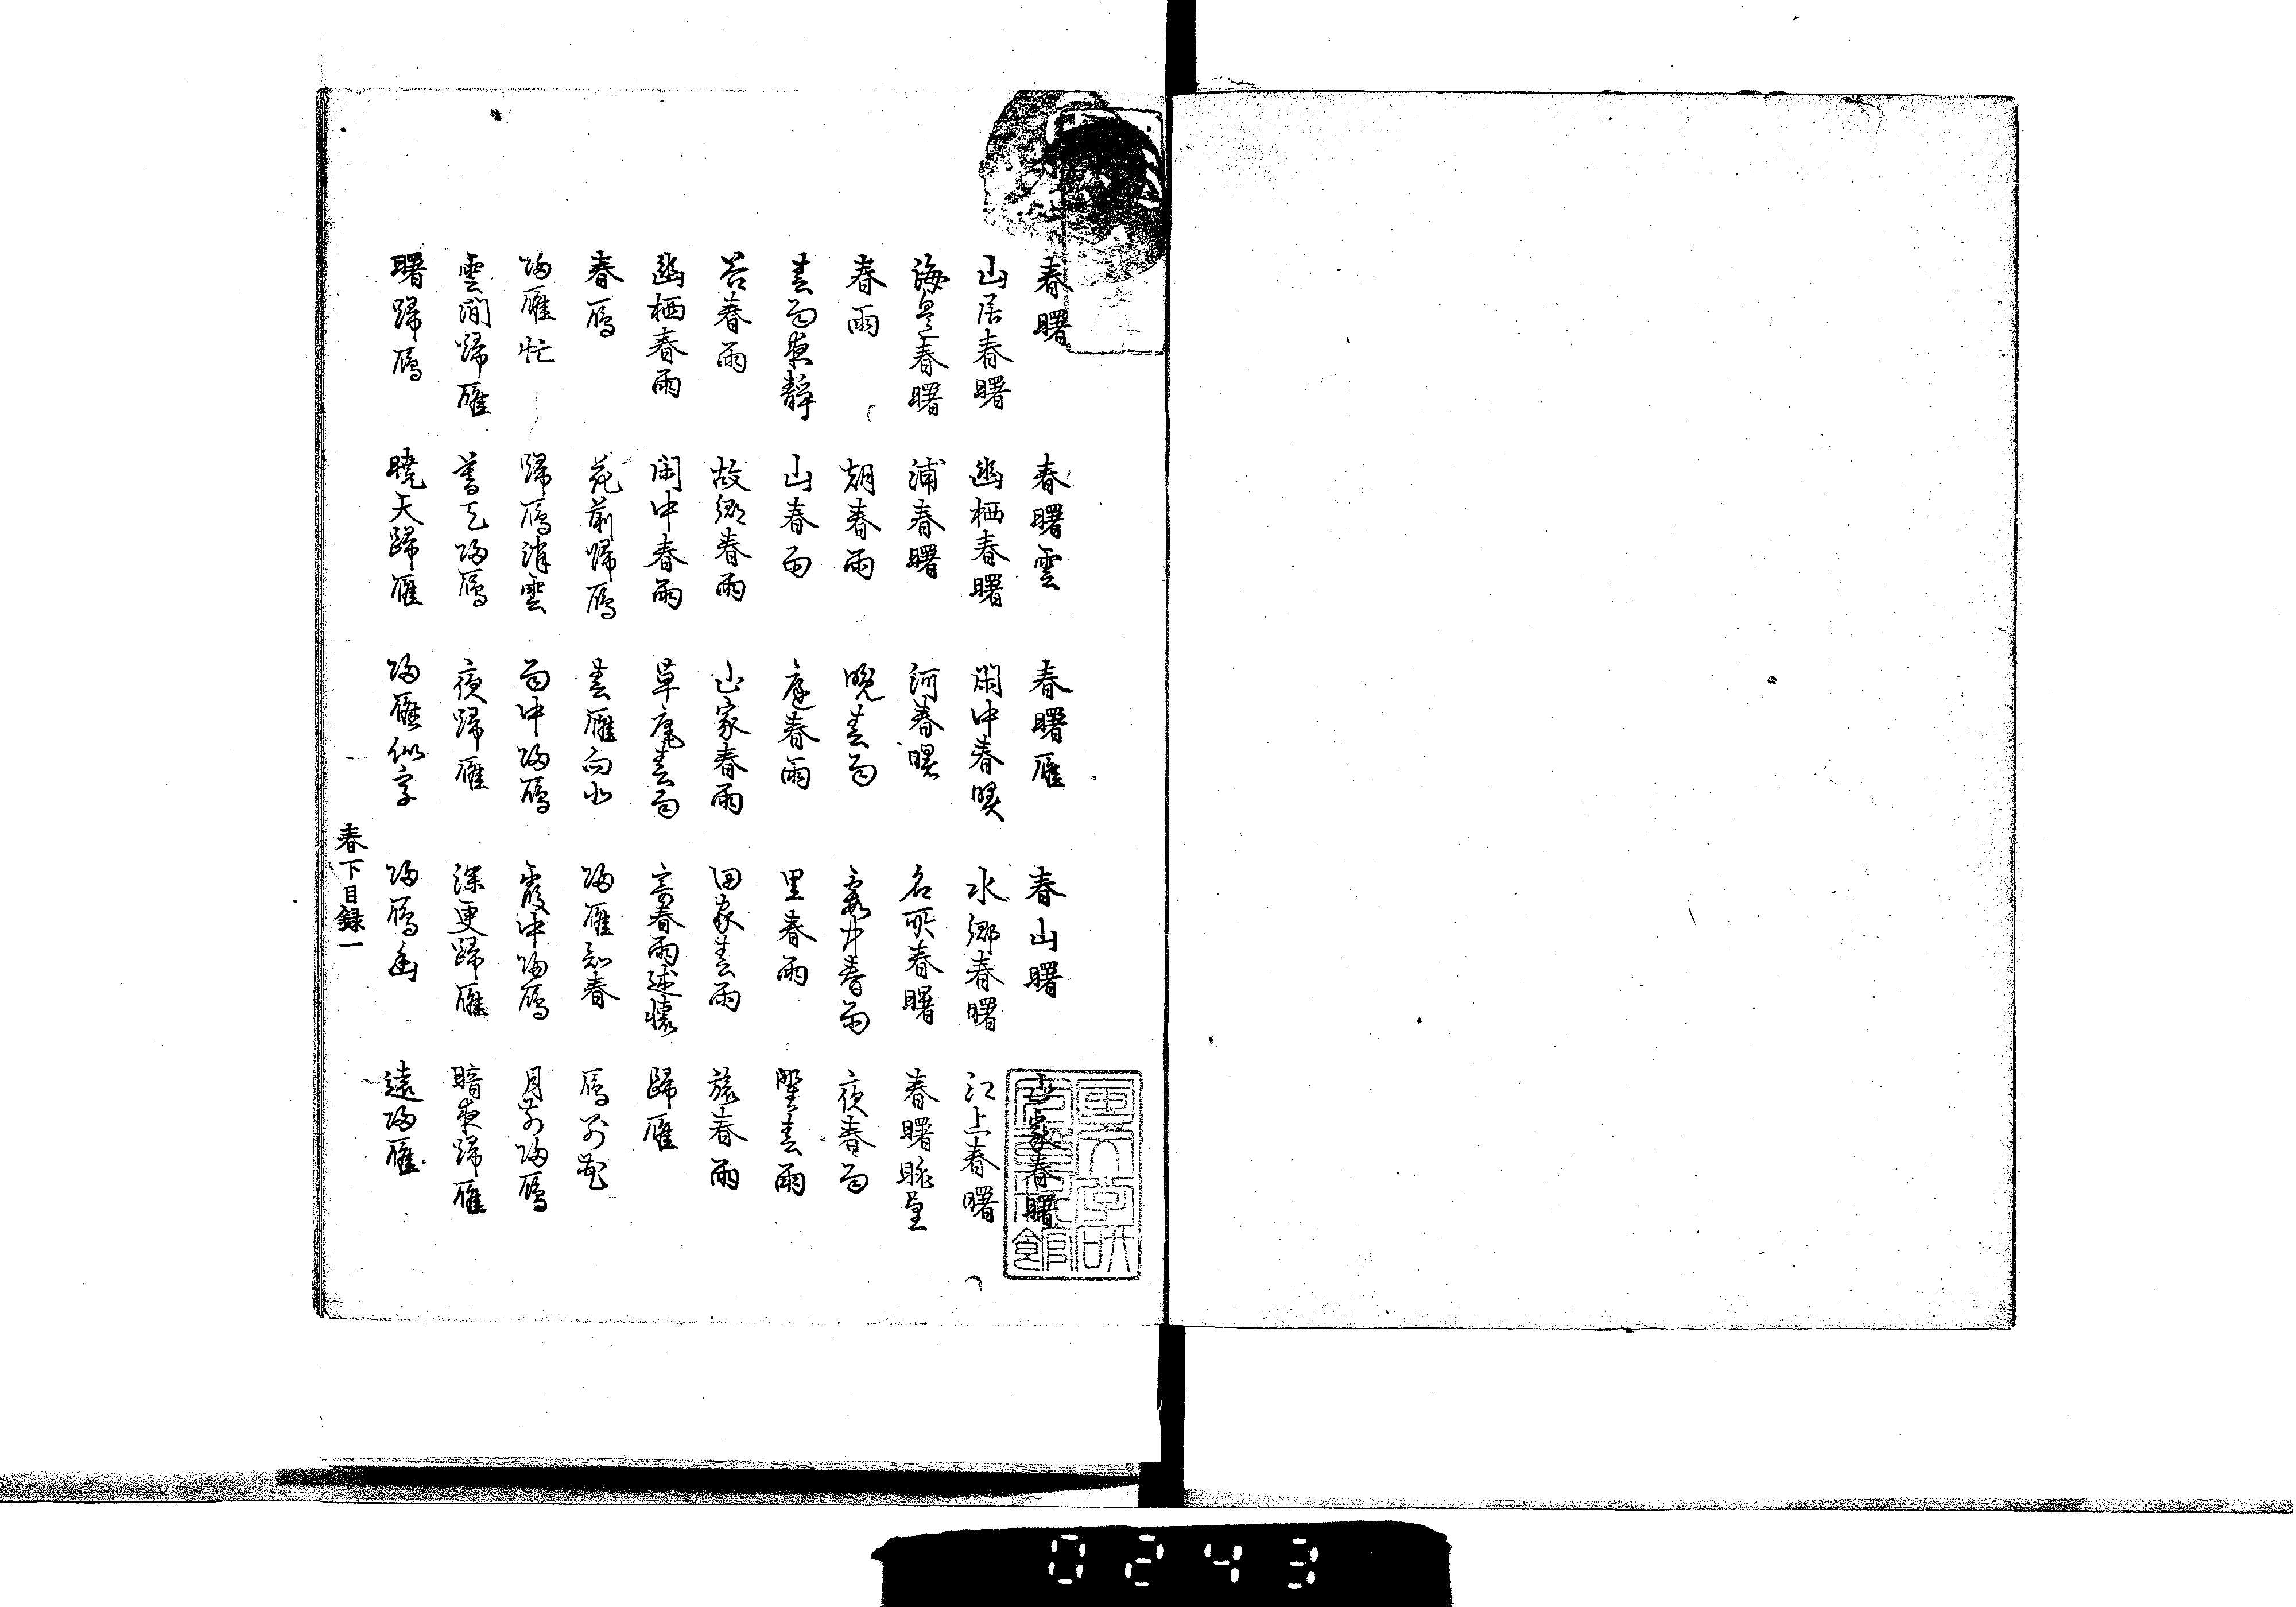 春曙　春曙雲　春曙雁　春山曙　山家春曙
山居春曙　幽栖春曙　閑中春曙　水郷春曙　江上春曙
海辺春曙　浦春曙　河春曙　名所春曙　春曙眺望
春雨　朝春雨　晩春雨　春雨　夜春雨
春雨夜静　山春雨　庭春雨　里春雨　野春雨
谷春雨　故郷春雨　山家春雨　田家春雨　旅春雨
幽栖春雨　閑中春雨　草庵春雨　寄春雨述懐　歸雁
春鴈　花前帰鴈　春雁向北　帰雁知春　鴈別花
帰雁忙　歸鴈消雲　雨中帰鴈　霞中帰鴈　月前帰鴈
雲間歸雁　暮天帰鴈　夜歸雁　深更歸雁　暗夜歸雁
曙歸鴈　曉天歸雁　帰雁似字　帰鴈幽　遠帰雁
春下目録一
0243